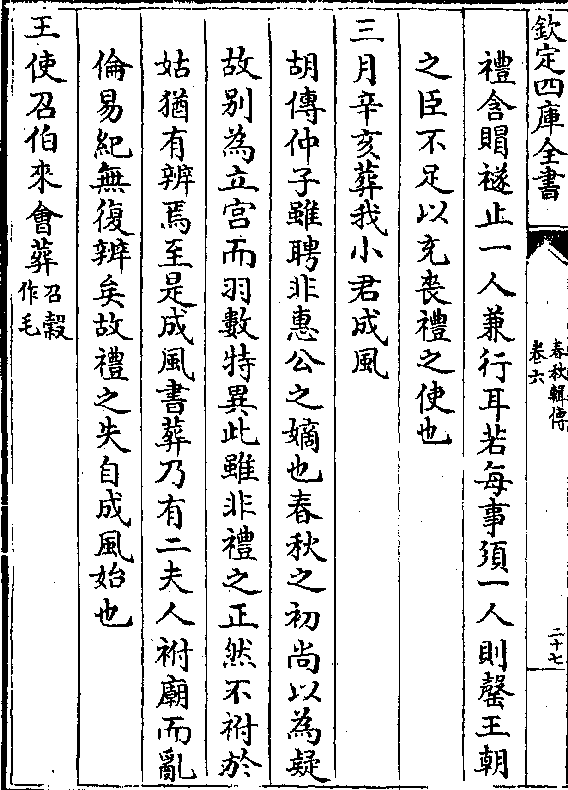 欽定四庫全書
春秋輯傳
卷六
二十七
禮含賵襚止一人兼行耳若每事須一人則罄王朝
之臣不足以充喪禮之使也
三月辛亥葬我小君成風
胡傳仲子雖聘非惠公之嫡也春秋之初尚以為疑
故别為立宫而羽數特異此雖非禮之正然不祔於
姑猶有辨焉至是成風書葬乃有二夫人祔廟而亂
倫易紀無復辨矣故禮之失自成風始也
王使召伯來會葬召穀作毛